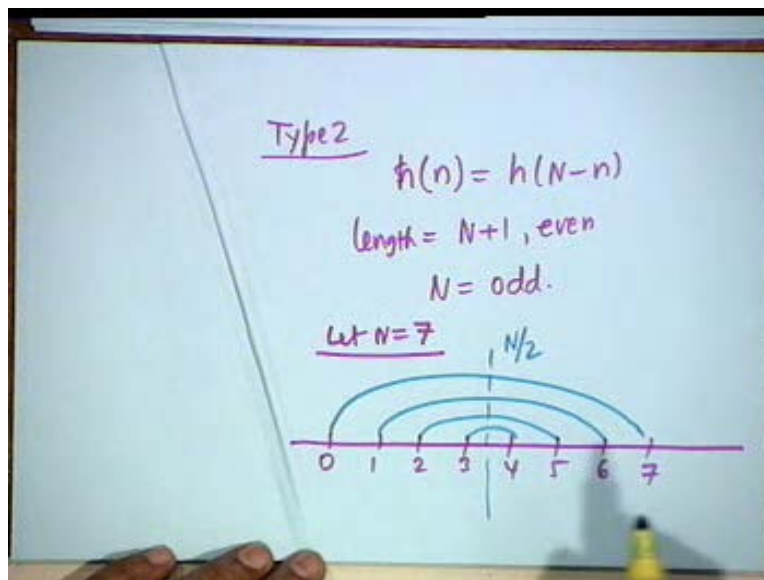 Type 2
h(n) = h(N-n)
length = N+1, even
N = odd.
Let N=7
N/2
0 1 2 3 4 5 6 7